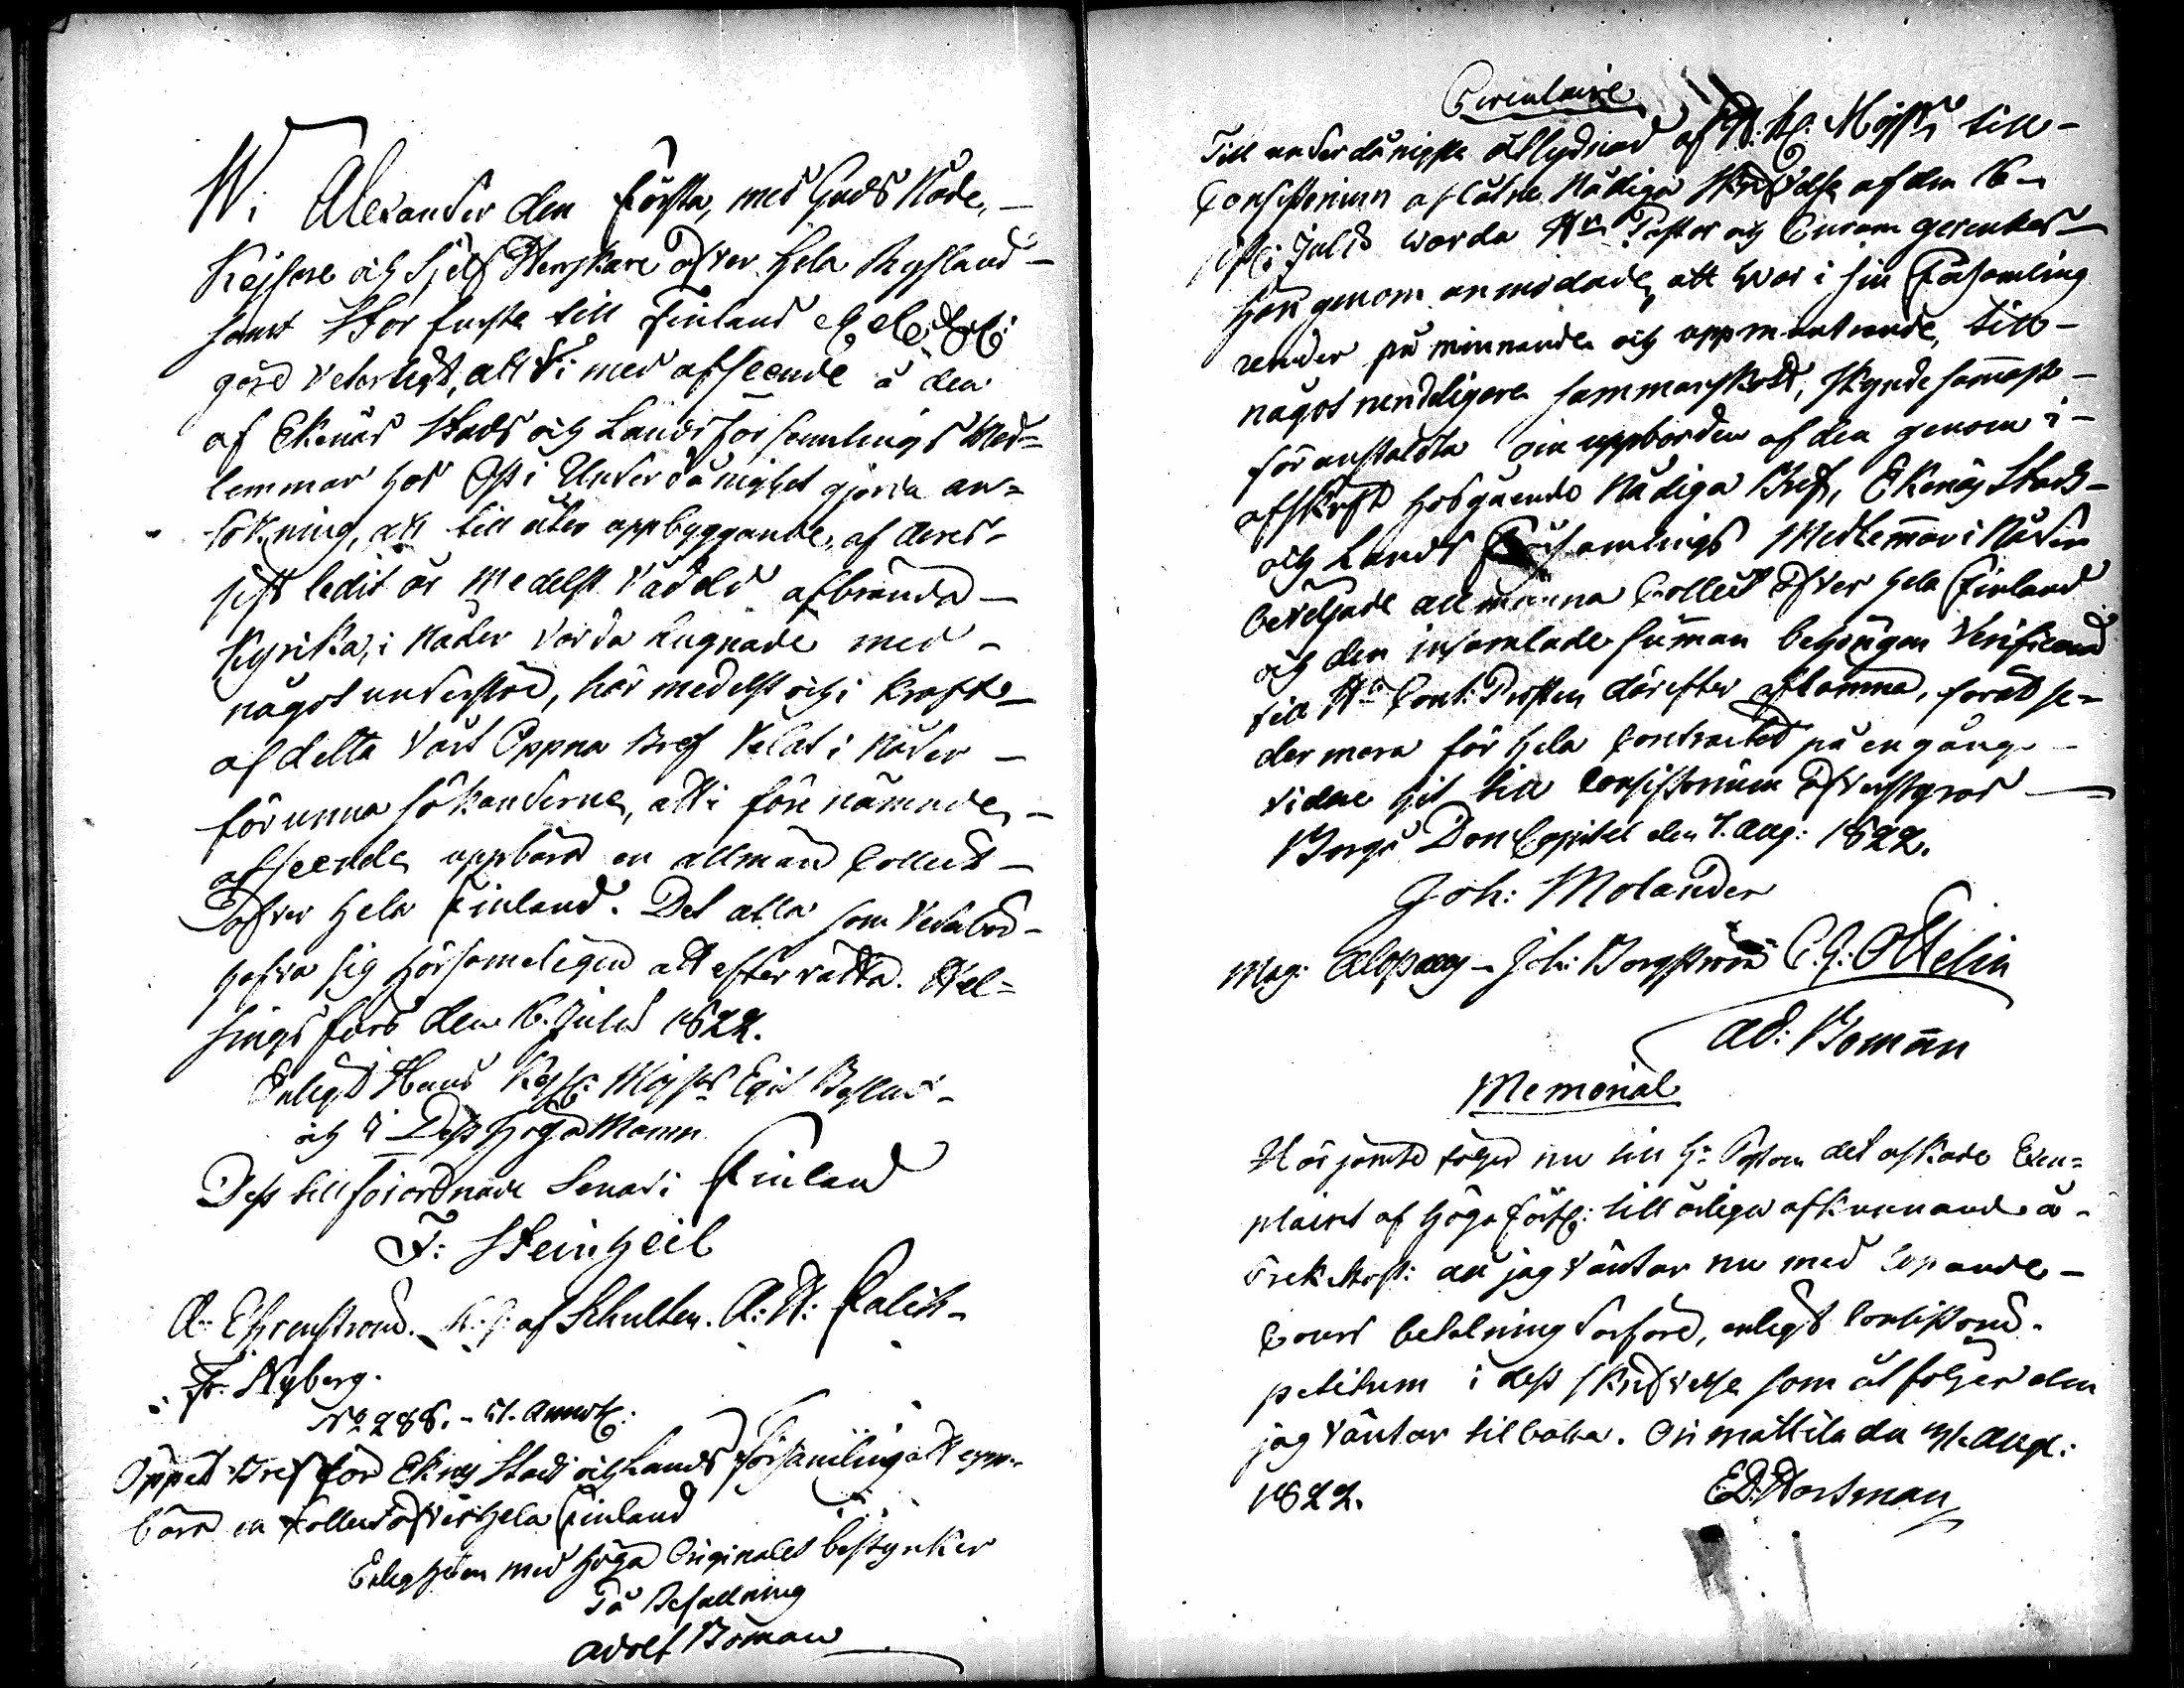 Wi Alexander den Första, med Guds Nåde, -
Kejsare och Sjelf Herrskare öfver hela Ryssland -
samt Stor furste till Finland etc etc etc:
göre veterligt, att Wi med afseende å den
af Ekenäs Stads och Landsförsamlings Med=
lemmar hos Oss i Underdånighet gjorda an=
sökning, att till åter uppbyggande, af deras
sist ledit år medelst Vådeld afbrända -
Kyrka, i Nåder varda hugnade med -
något understöd, här medelst och i kraft -
af detta Vårt Öppna Bref Velat i Nåder -
förunna sökanderne, att i före nämnde, -
afseende uppbära en allmän Collect -
öfver hela Finland. Det alla som Vederbör -
hafva sig hörsameligen att efterrätta. Hel=
singfors den 16. Julii 1822.
Enligt Hans Kejs: Majsts Eget Beslut -
och i Dess Höga Namn
Dess tillförordnade Senat i Finland
F: Steinheil
A: Ehrenstrom. af Schulten. A: H: Falck -
Fr: Nyberg.
No 288.
Öppet Bref för Ekenäs Stads och Lands församling att upp-
bära en Collect öfver hela Finland
Enligheten med Höga Originalet bestyrker
På Befallning
Adolf Boman
Circulaire
Till underdånigste åtlydnad af K: M: Majsts till -
Consistorium aflåtne Nådiga Skrifvelse af den 16 -
sistl: Julii warda Hrr Pastor och
härigenom anmodade, att hvar i sin Församling
under påminnande och uppmuntrande, till -
något nerdeligare sammanskott, skyndesammast -
föranstalta om uppborden af den genom i -
afskrift hosgående Nådiga Bref, Ekenäs Stads -
och Lands Församlings Medlemmar i Nåder
beviljade allmänna Collect öfver hela Finland
och den insamlade summan behörigen Verificerad
till Hr Cont: Prosten därefter aflämna, för att se=
dermera för hela Contractet på en gång -
vidare hit till Consistorium öfverstyras -
Borgå Dom Capitel den 7. Aug: 1822.
Joh: Molander
Mag: Alopæus - Joh: Borgström C. G: Ottelin
Ad: Boman
Memorial
Här jemte följer nu till Hr Pastorn det askade Exem=
plairet af Höga Förf: till årliga afkunnande å -
Predikst: an jag väntar nu med löpande -
Cours betalning derföre, enligt Consistorii -
petitum i dess skrifvelse som åtföljer den
jag väntar tilbaka. Orimattila den Aug:
1822.
E. D. Hartman